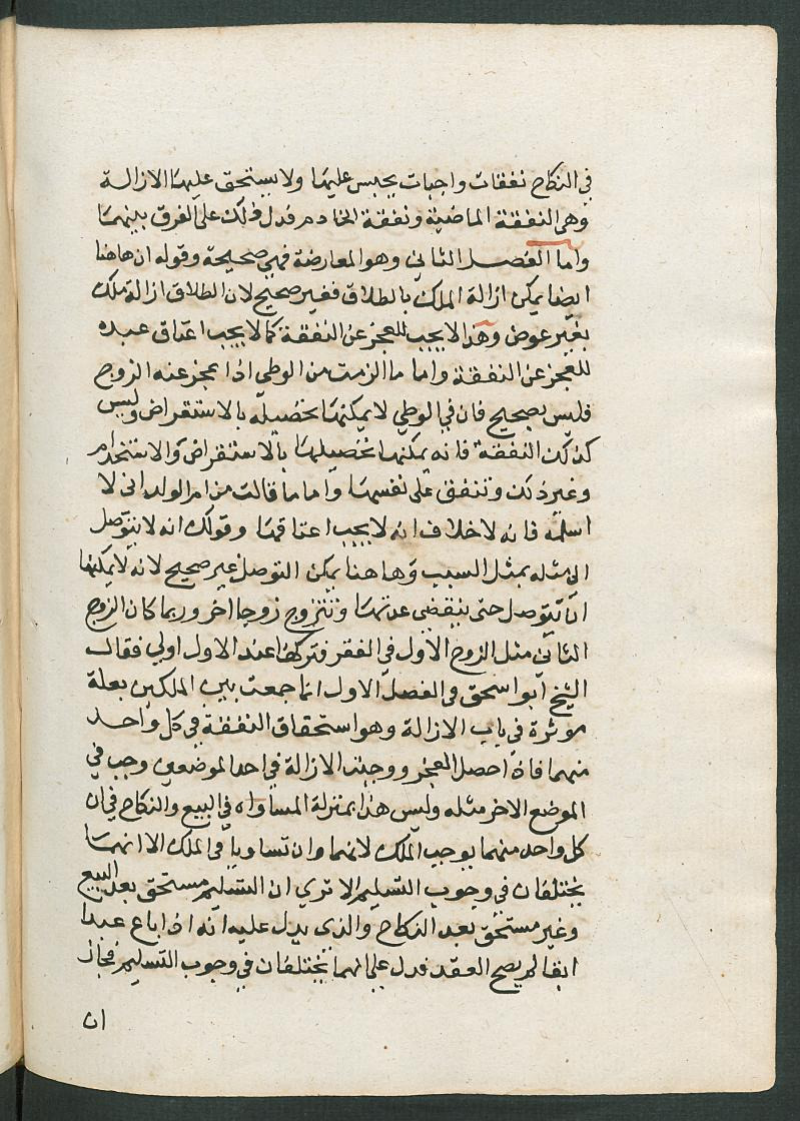 في النكاح نفقات واجبات يحبس عليها ولا يستحق عليها الازالة
وهي النفقة الماضية ونفقة الخادم فدل ذلك على الفرق بينهما
واما الفصل الثاني وهو المعارضة فهي صحيحة وقوله ان هاهنا
ايضا يمكن ازالة الملك بالطلاق فغير صحيح لان الطلاق ازالة ملك
بغير عوض وهذا لا يجب للعجز عن النفقة كما لا يجب اعتاق عبده
للعجز عن النفقة واما ما الزمت من الوطي اذا عجز عنه الزوج
فليس بصحيح فان في الوطي لا يمكنها تحصيله بالاستقراض وليس
كذلك النفقة فانه يمكنها تحصيلها بالاستقراض والاستخدام
وغير ذلك وتنفق على نفسها واما ما قالت من ام الولد اني لا
اسلمه فانه لا خلاف انه لا يجب اعتاقها وقولك انه لا يتوصل
الا مثله بمثل السبب وهاهنا يمكن التوصل غير صحيح لانه لا يمكنها
ان تتوصل حتى ينقضي عدتها وتتزوج زوجا اخر وربما كان الزوج
الثاني مثل الزوج الاول في الفقر فتركها عند الاول اولي فقال
الشيخ ابو اسحق في الفصل الاول انا جمعت بين الملكين بعلة
موثرة في باب الازالة وهو استحقاق النفقة في كل واحد
منهما فاذا حصل العجز ووجبت الازالة في احد الموضعين وجب في
الموضع الاخر مثله وليس هذا بمنزلة المساواة في البيع والنكاح في ان
كل واحد منهما يوجب الملك لانهما وان تساويا في الملك الا انهما
يختلفان في وجوب التسليم الا تري ان التسليم مستحق بعد البيع
وغير مستحق بعد النكاح والذي يدل عليه انه اذا باع عبدا
ابقا لم يصح العقد فدل على انهما يختلفان في وجوب التسليم فجاز
ان